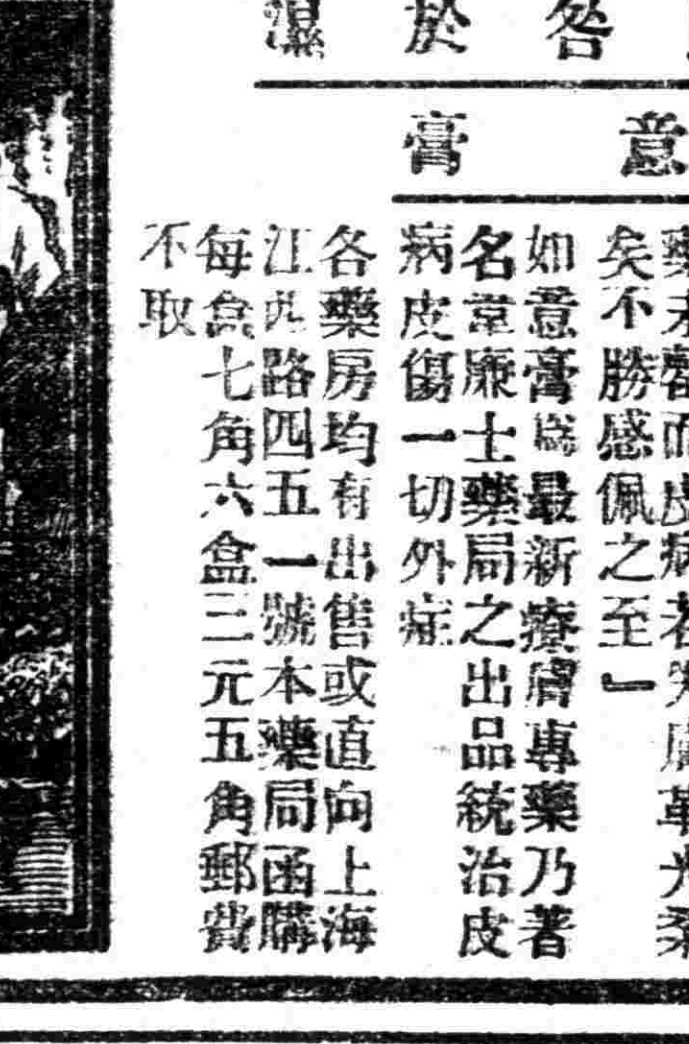 咎
於
濕
意
膏
矣不勝感佩之至」
如意膏爲最新療膚專藥乃著
名韋廉士藥局之出品統治皮
病皮傷一切外症
各藥房均有出售或直向上海
江西路四五一號本藥局函購
每盒七角六盒三元五角郵費
不取